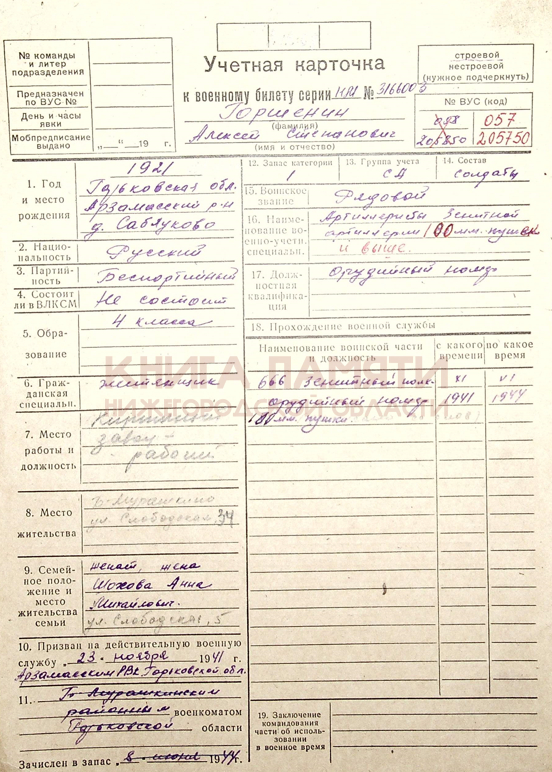 № команды
и литер
подразделения
Предназначен
по ВУС №
День и часы
явки
Мобпредписание
выдано
„ “ 19 г.
Учетная карточка
к военному билету серии НИ № 3166005
Горшенин
(фамилия)
Алексей Степанович
(имя и отчество)
строевой
нестроевой
(нужное подчеркнуть)
№ ВУС (код)
057
205850 205750
1. Год
и место
рождения
1921
Горьковская обл.
Арзамасский р-н
д. Саблуково
2. Нацио-
нальность
Русский
3. Партий-
ность
Беспартийный
4. Состоит
ли в ВЛКСМ
Не состоит
5. Обра-
зование
4 класса
6. Граж-
данская
специальн.
жестянщик
7. Место
работы и
должность
Кирпичный
завод -
рабочий
8. Место
жительства
Б-Мурашкино
ул. Слободская, 34
9. Семей-
ное поло-
жение и
место
жительства
семьи
женат, жена
Шохова Анна
Михайлович.
ул. Слободская, 5
10. Призван на действительную военную
службу 23 ноября 1941 г.
Арзамасским РВК Горьковской обл.
11. Б-Мурашкинским
районным военкоматом
Горьковской области
Зачислен в запас 8 июня 1944 г.
12. Запас категории
1
13. Группа учета
СА
14. Состав
солдаты
15. Воинское
звание
Рядовой
16. Наиме-
нование во-
енно-учетн.
специальн.
Артиллеристы зенитной
артиллерии 100 мм. пушек
и выше.
17. Долж-
ностная
квалифика-
ция
орудийный номер
18. Прохождение военной службы
Наименование воинской части
и должность
с какого
времени
по какое
время
666 зенитный полк XI VI
орудийный номер 1941 1944
100 мм. пушки.
19. Заключение
командования
части об исполь-
зовании
в военное время
КНИГА ПАМЯТИ
НИЖЕГОРОДСКОЙ ОБЛАСТИ